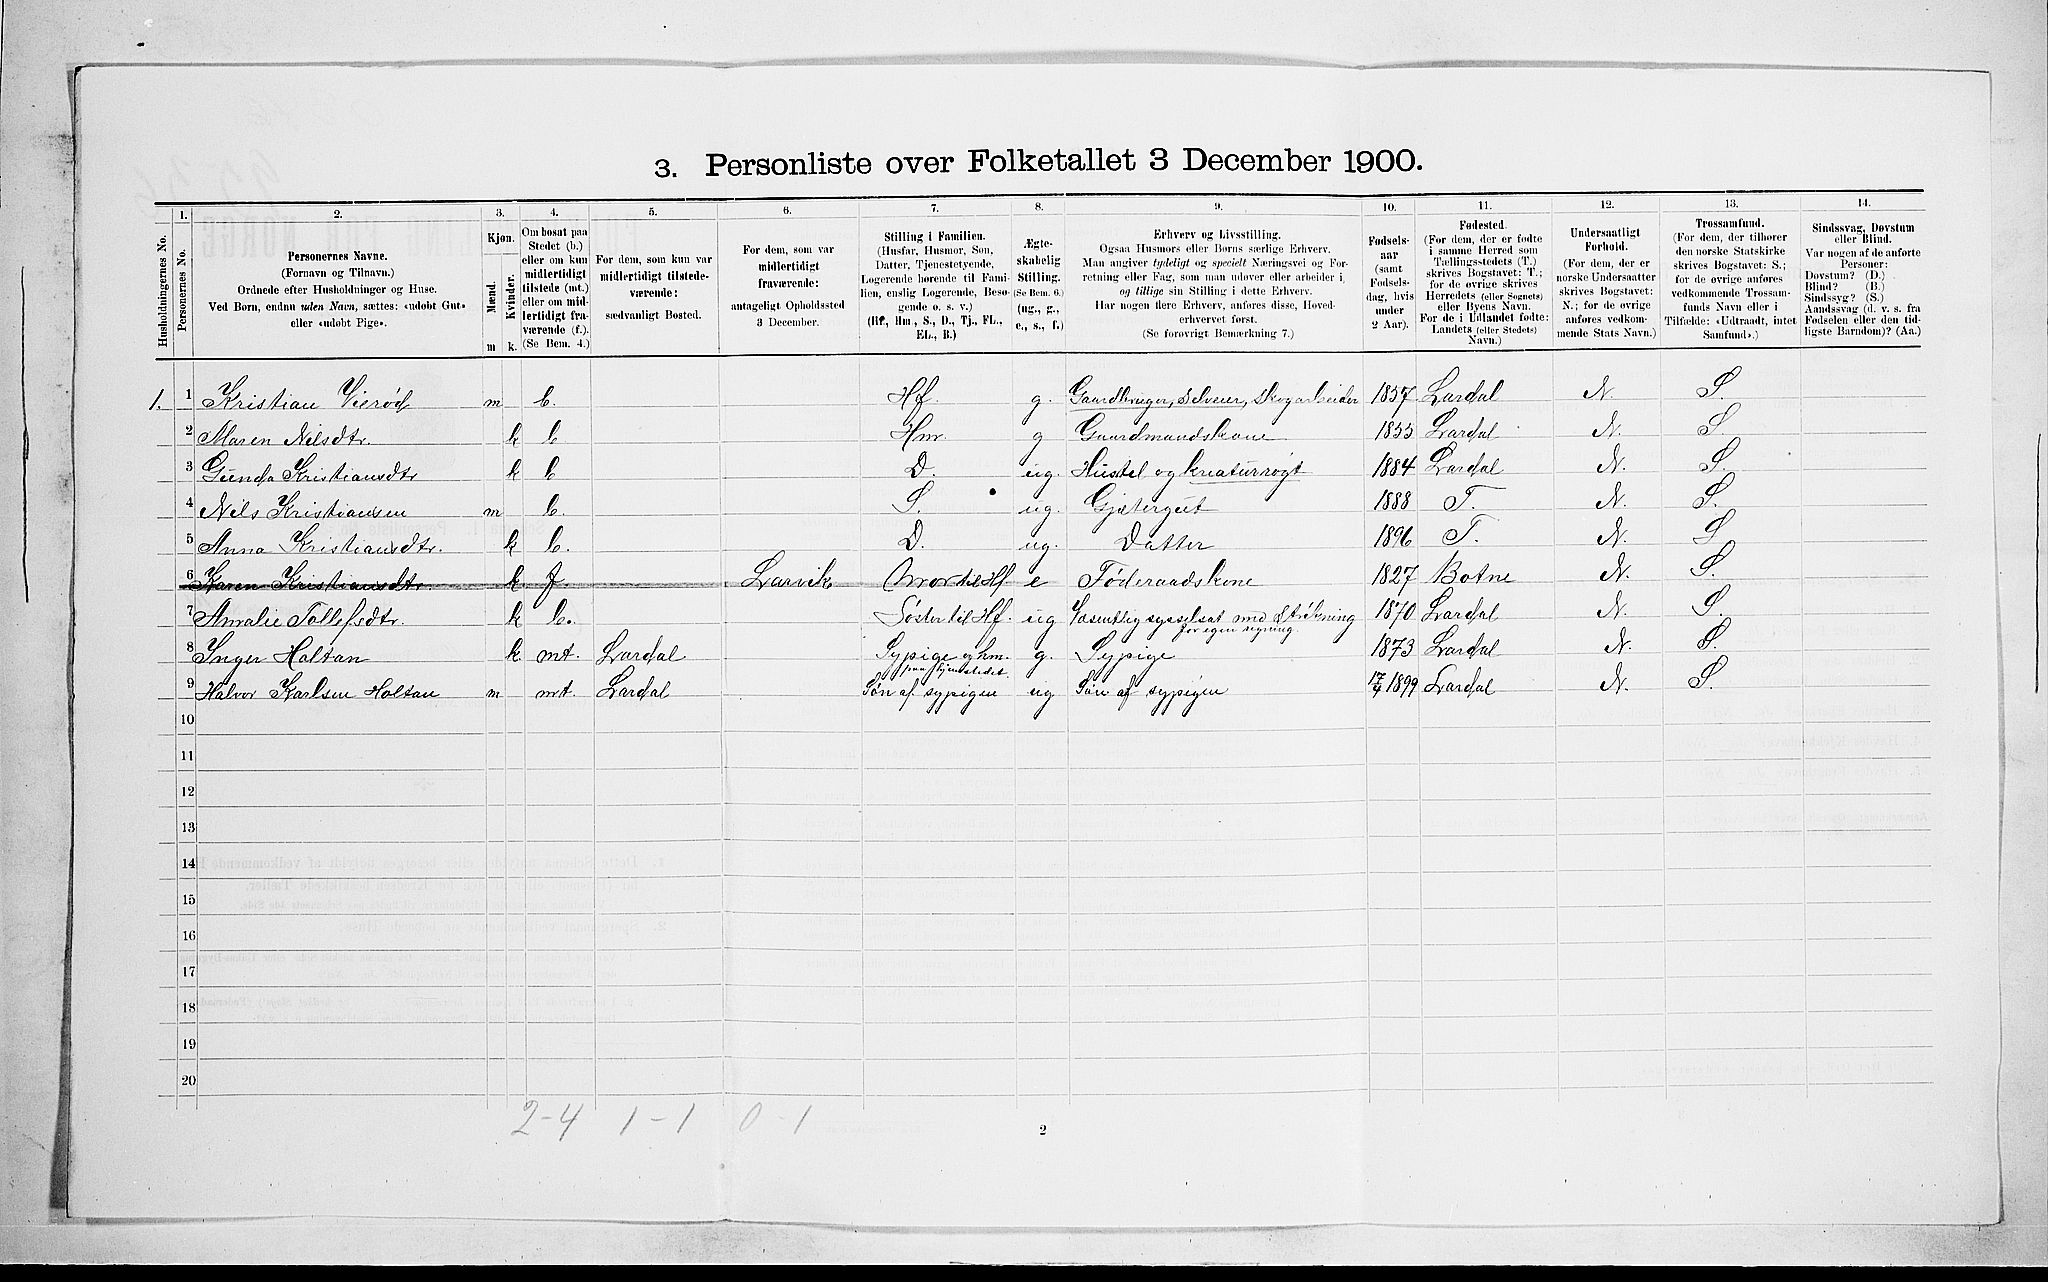 3. Personliste over Folketallet 3 December 1900.
1. 2. 3. 4. 5. 6. 7. 8. 9. 10. 11. 12. 13. 14.
Husholdningernes No.
Personernes No.
Personernes Navne.
(Fornavn og Tilnavn.)
Ordnede efter Husholdninger og Huse.
Ved Børn, endnu uden Navn, sættes: «udøbt Gut»
eller «udøbt Pige».
Kjøn.
Mænd.
Kvinder.
m k.
Om bosat paa
Stedet (b.)
eller om kun
midlertidigt
tilstede (mt.)
eller om mid-
lertidigt fra-
værende (f.).
(Se Bem. 4.)
For dem, som kun var
midlertidigt tilstede-
værende:
sædvanligt Bosted.
For dem, som var
midlertidigt
fraværende:
antageligt Opholdssted
3 December.
Stilling i Familien.
(Husfar, Husmor, Søn,
Datter, Tjenestetyende,
Logerende hørende til Fami-
lien, enslig Logerende, Besø-
gende o. s. v.)
(Hf., Hm., S., D., Tj., FL.,
EL., B.)
Ægte-
skabelig
Stilling.
(Se Bem. 6.)
(ug., g.,
e., s., f.)
Erhverv og Livsstilling.
Ogsaa Husmors eller Børns særlige Erhverv.
Man angiver tydeligt og specielt Næringsvei og For-
retning eller Fag, som man udøver eller arbeider i,
og tillige sin Stilling i dette Erhverv.
Har nogen flere Erhverv, anføres disse, Hoved-
erhvervet først.
(Se forøvrigt Bemærkning 7.)
Fødsels-
aar
(samt
Fødsels-
dag, hvis
under
2 Aar).
Fødested.
(For dem, der er fødte
i samme Herred som
Tællingsstedets (T.)
skrives Bogstavet: T.;
for de øvrige skrives
Herredets (eller Sognets)
eller Byens Navn.
For de i Udlandet fødte:
Landets (eller Stedets)
Navn.)
Undersaatligt
Forhold.
(For dem, der er
norske Undersaatter
skrives Bogstavet:
N.; for de øvrige
anføres vedkom-
mende Stats Navn.)
Trossamfund.
(For dem, der tilhører
den norske Statskirke
skrives Bogstavet: S.;
for de øvrige anføres
vedkommende Trossam-
funds Navn eller i
Tilfælde: «Udtraadt, intet
Samfund».)
Sindssvag, Døvstum
eller Blind.
Var nogen af de anførte
Personer:
Døvstum? (D.)
Blind? (B.)
Sindssyg? (S.)
Aandssvag (d. v. s. fra
Fødselen eller den tid-
ligste Barndom)? (Aa.)
1. 1 Kristian Vierød m b. Hf. g. Gaardbruger, selveier, skogarbeider 1857 Lardal N. S.
2 Maren Nilsdtr. k b Hm. g Gaardmandskone 1855 Lardal N. S
3 Gunda Kristiansdtr k b D. ug. Hustel og kreaturrøgt 1884 Lardal N. S.
4 Nils Kristiansen m b. S. ug. Gjætergut 1888 T. N. S.
5 Anna Kristiansdtr. k b. D. ug. Datter 1896 T. N. S
6 Karen Kristiansdtr. k f Larvik Mor til Hf e Føderaadskone 1827 Botne N. S.
7 Amalie Tollefsdtr. k b. Søster til Hf. ug Væsentlig sysselsat med Strikning 1870 Lardal N. S.
for egen regning.
8 Inger Holtan k. mt. Lardal Sypige og hm. g. Sypige 1873 Lardal N. S.
paa hjemstedet.
9 Halvor Karlsen Holtan m mt. Lardal Søn af sypigen ug Søn af sypigen 17/4 1899 Lardal N. S.
10
11
12
13
14
15
16
17
18
19
20
2-4 1-1 0-1
2